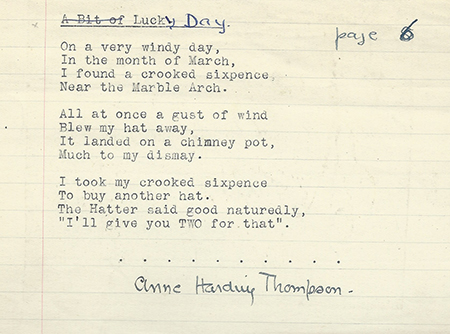 A Bit of Lucky Day.
page 6
On a very windy day,
In the month of March,
I found a crooked sixpence,
Near the Marble Arch.
All at once a gust of wind
Blew my hat away,
It landed on a chimney pot,
Much to my dismay.
I took my crooked sixpence
To buy another hat.
The Hatter said good naturedly,
"I'll give you TWO for that".
. . . . . . . . . .
Anne Harding Thompson.